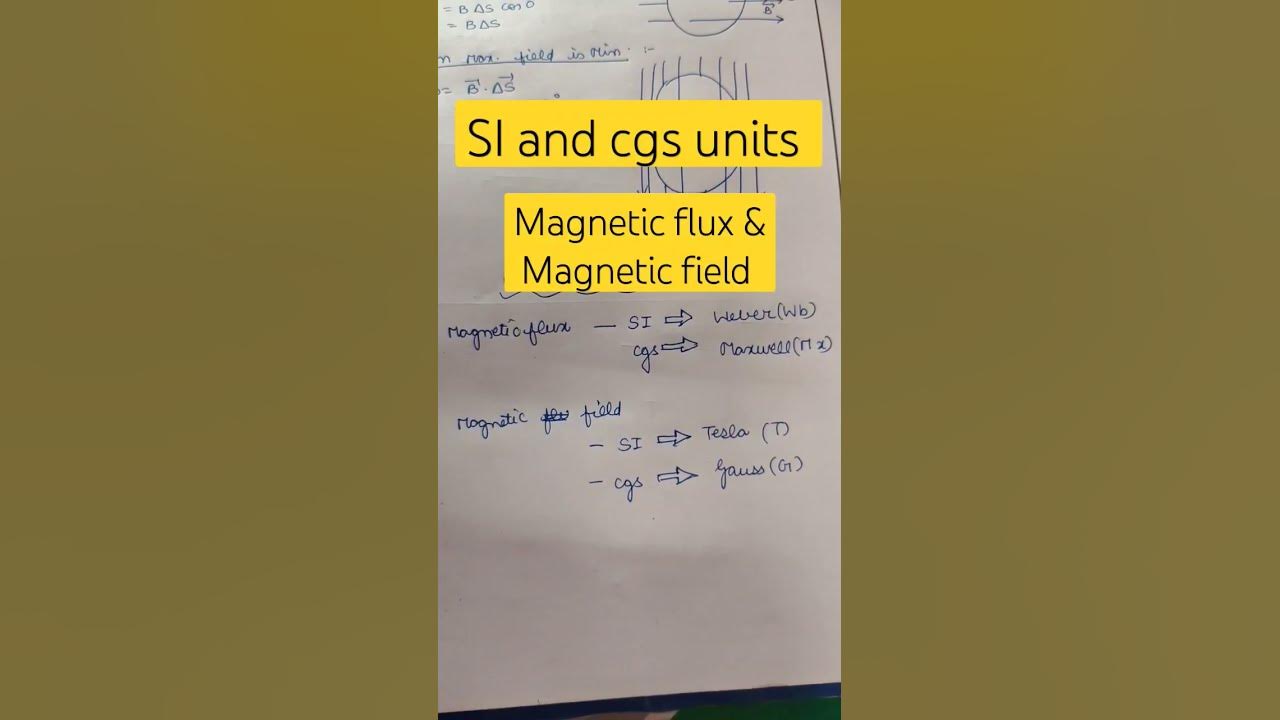 = B ΔS cos 0
= BΔS
B⃗
n Max. field is Min. :-
= B⃗ · ΔS⃗
SI and cgs units
Magnetic flux &
Magnetic field
Magnetic flux — SI ⇒ Weber (Wb)
cgs ⇒ Maxwell (Mx)
Magnetic field
– SI ⇒ Tesla (T)
– cgs ⇒ Gauss (G)